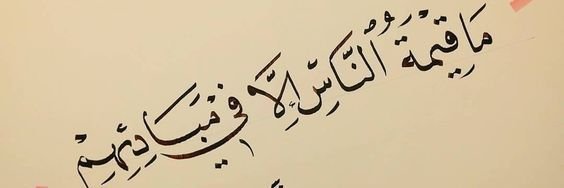 مَا قِيْمَةُ ٱلنَّاسِ إِلَّا فِي مَبَادِئِهِمْ